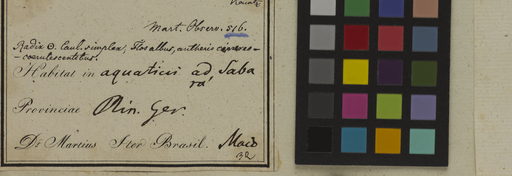 Mart. Observ. 516.
Radix ʘ. Caul. simplex, Flos albus, antheris
-coerulescentibus.
Habitat in aquaticis ad Saba
rá
Provinciae Min. Ger.
Dr Martius Iter Brasil.